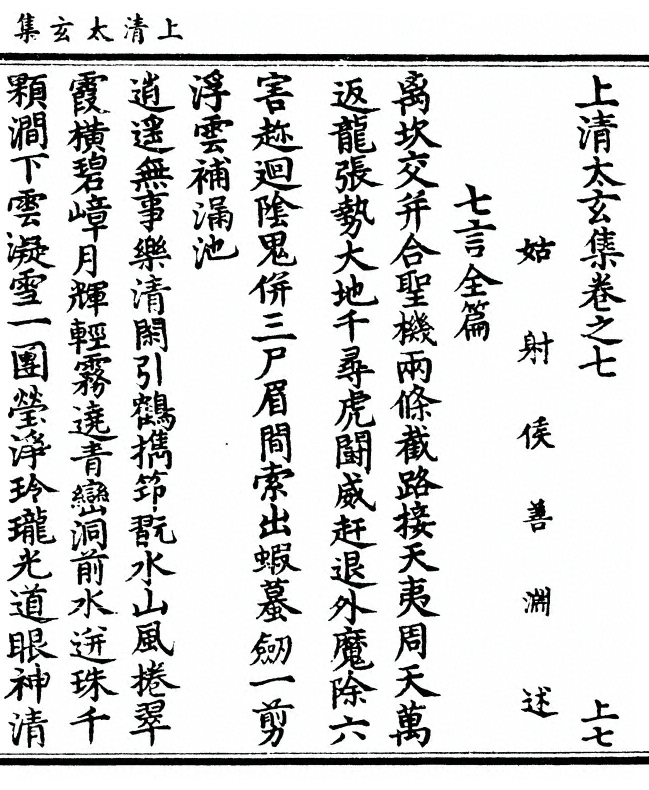 上清太玄集
上清太玄集卷之七 上七
姑射侯善淵述
七言全篇
离坎交并合聖機兩條截路接天夷周天萬
返龍張勢大地千尋虎鬪威赶退外魔除六
害趂迴陰鬼併三尸眉間索出蝦蟇劒一剪
浮雲補漏池
逍遥無事樂清閑引鶴擕筇翫水山風捲翠
霞橫碧嶂月輝輕霧遶青巒洞前水迸珠千
顆澗下雲凝雪一團瑩淨玲瓏光道眼神清